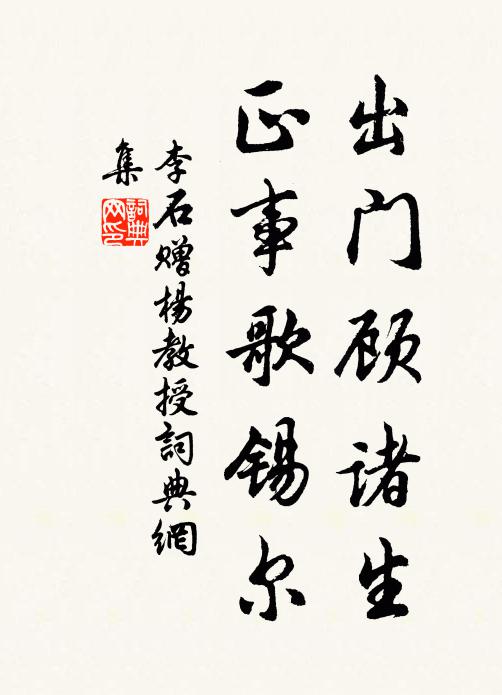 出门顾诸生
正事歌锡尔
李石赠杨教授詞典網
集
詞典
网印